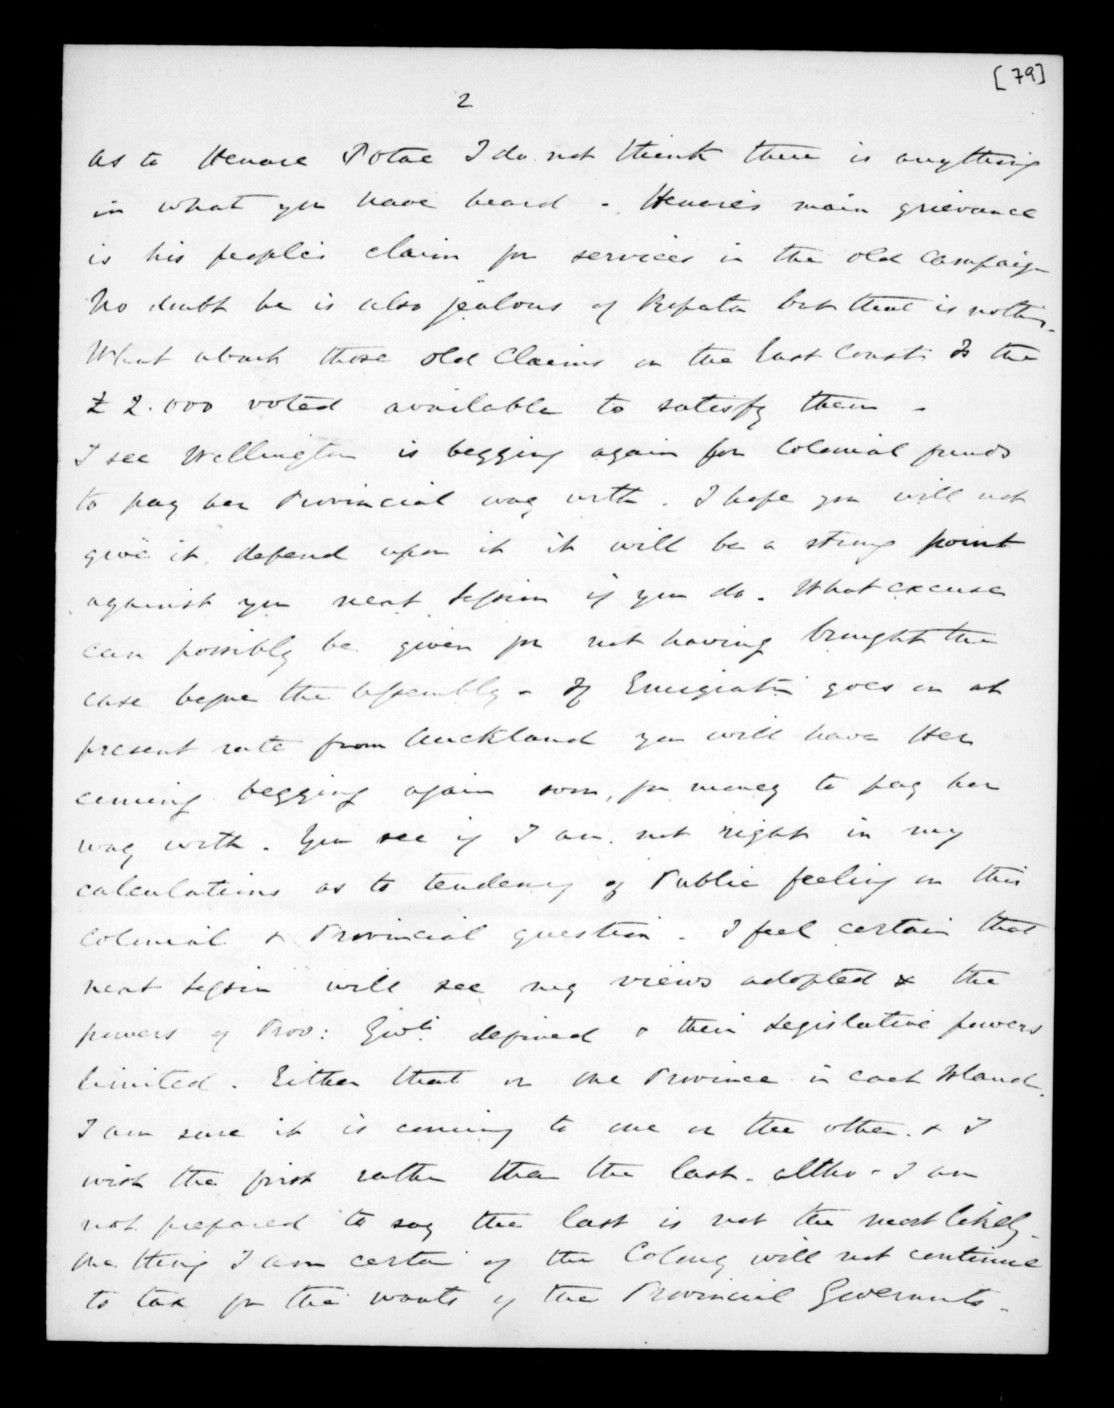 [79]
2
as to Henare Potae I do not think there is anything
in what you have heard - Henare's main grievance
is his people's claim for services in the old Campaign
No doubt he is also jealous of Ropata but that is nothing.
What about those old Claims on the East Coast Is the
£2.000 voted available to satisfy them -
I see Wellington is begging again for Colonial funds
to pay her Provincial way with. I hope you will not
give it, depend upon it it will be a strong point
against you next Session if you do. What excuse
can possibly be given for not having brought the
case before the Assembly - If Emigratn goes on at
present rate from Auckland you will have Her
coming begging again soon, for money to pay her
way with. You see if I am not right in my
calculations as to tendency of Public feeling on this
Colonial & Provincial question. I feel certain that
next Session will see my views adopted & the
powers of Prov: Govts. defined & their Legislative powers
limited. Either that or one Province in each Island.
I am sure it is coming to one or the other. & I
wish the first rather than the last. altho - I am
not prepared to say the last is not the most likely.
One thing I am certain of the Colony will not continue
to tax for the wants of the Provincial Governmts.